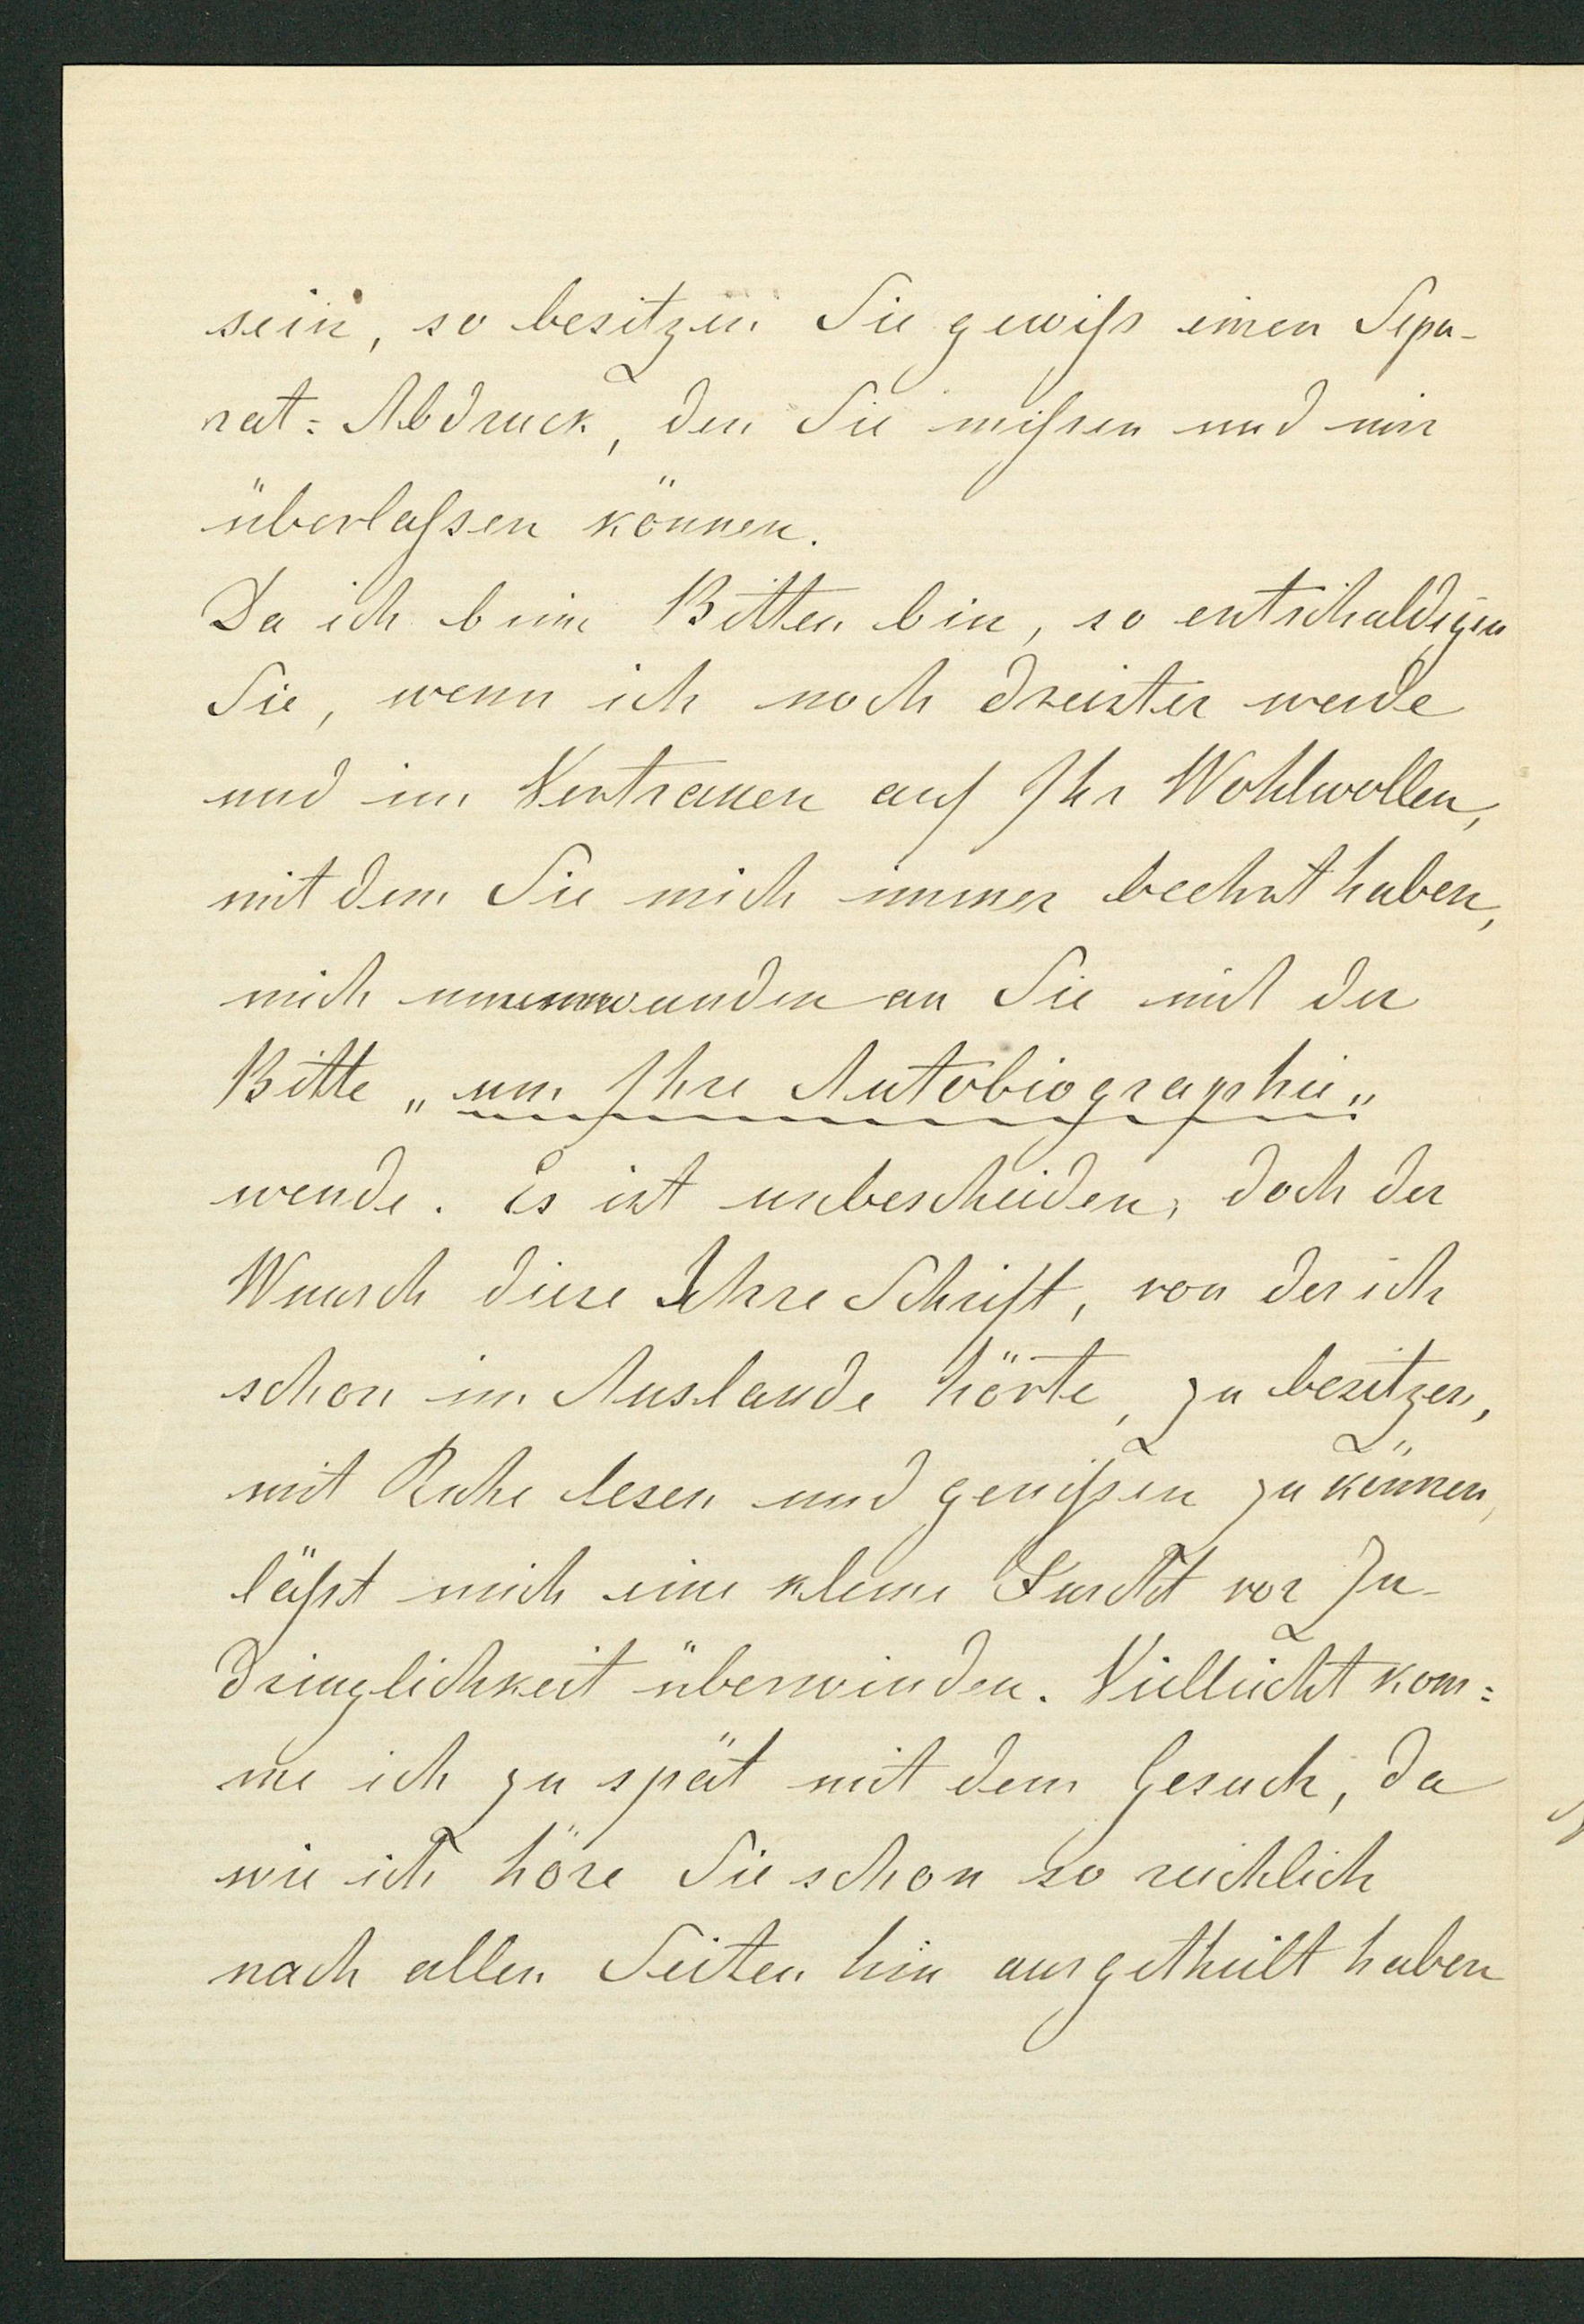 sein, so besitzen Sie gewiß einen Sepa-
rat=Abdruck, den Sie mißen und mir
überlaßen können.
Da ich beim Bitten bin, so entschuldigen
Sie, wenn ich noch dreister werde
und im Vertrauen auf Ihr Wohlwollen,
mit dem Sie mich immer beehrt haben,
mich unumwunden an Sie mit der
Bitte „um Ihre Autobiographie„
wende. Es ist unbescheiden, doch der
Wunsch diese Ihre Schrift, von der ich
schon im Auslande hörte, zu besitzen,
mit Ruhe lesen und genißen zu können,
läßt mich eine kleine Furcht vor Zu-
dringlichkeit überwinden. Vielleicht kom=
me ich zu spät mit dem Gesuch, da
wie ich höre Sie schon so reichlich
nach allen Seiten hin ausgetheilt haben